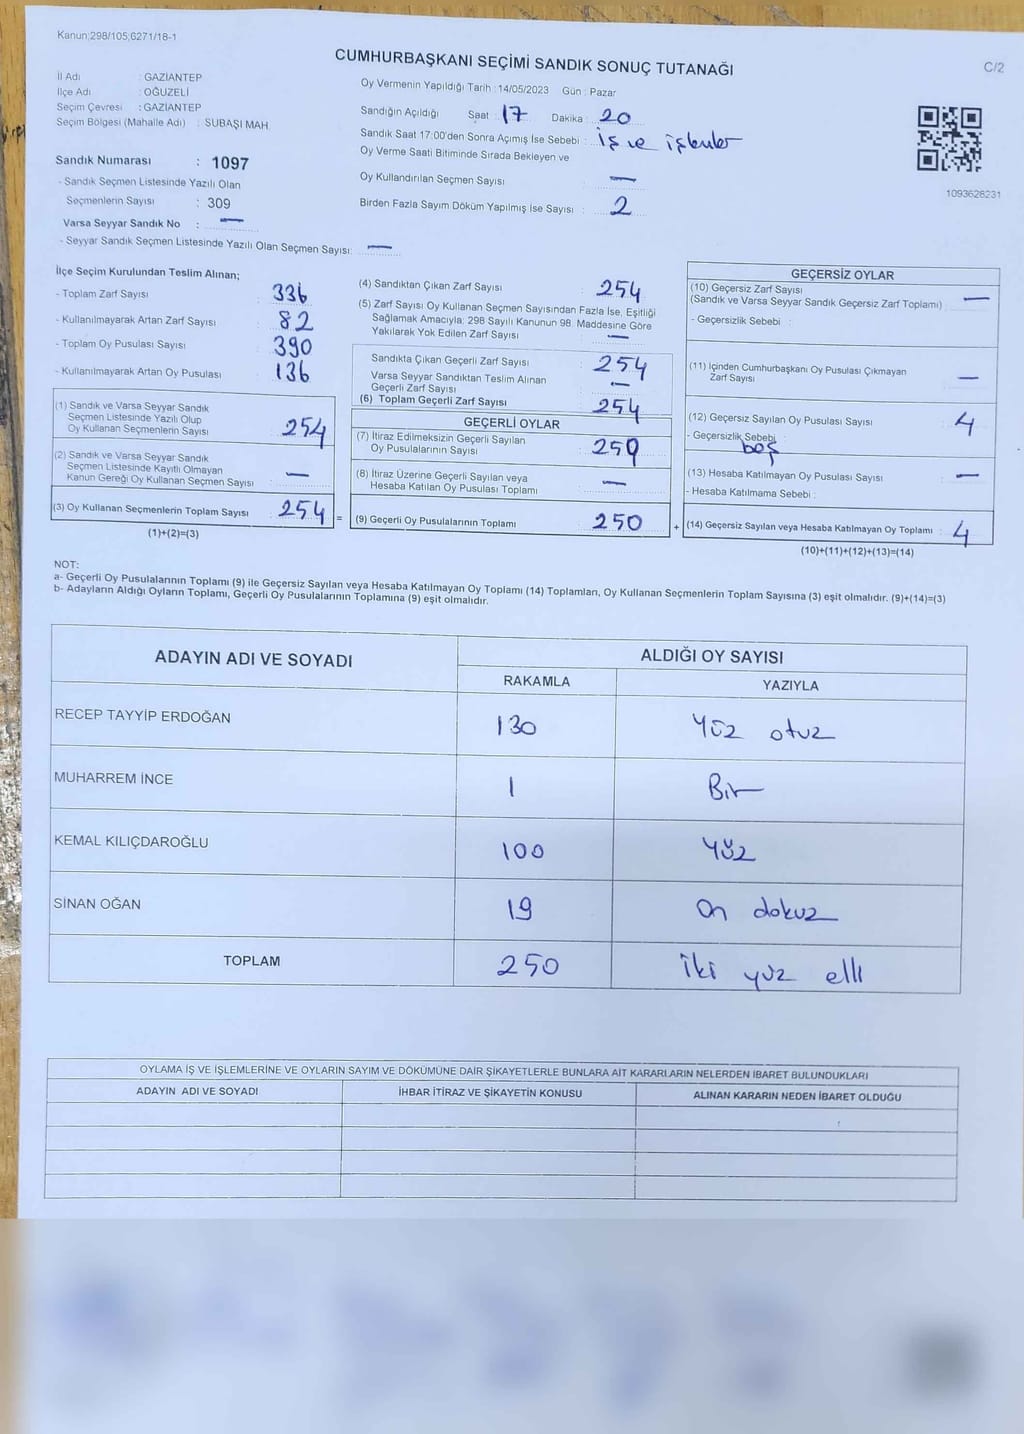 Kanun;298/105;6271/18-1
CUMHURBAŞKANI SEÇİMİ SANDIK SONUÇ TUTANAĞI
C/2
İl Adı : GAZIANTEP
İlçe Adı : OĞUZELİ
Seçim Çevresi : GAZIANTEP
Seçim Bölgesi (Mahalle Adı) : SUBAŞI MAH.
Sandık Numarası : 1097
- Sandık Seçmen Listesinde Yazılı Olan
Seçmenlerin Sayısı : 309
Varsa Seyyar Sandık No : —
- Seyyar Sandık Seçmen Listesinde Yazılı Olan Seçmen Sayısı: —
Oy Vermenin Yapıldığı Tarih : 14/05/2023 Gün : Pazar
Sandığın Açıldığı Saat : 17 Dakika : 20
Sandık Saat 17:00'den Sonra Açımış İse Sebebi : iş ve işlemler
Oy Verme Saati Bitiminde Sırada Bekleyen ve
Oy Kullandırılan Seçmen Sayısı : —
Birden Fazla Sayım Döküm Yapılmış İse Sayısı : 2
1093628231
İlçe Seçim Kurulundan Teslim Alınan;
- Toplam Zarf Sayısı : 336
- Kullanılmayarak Artan Zarf Sayısı : 82
- Toplam Oy Pusulası Sayısı : 390
- Kullanılmayarak Artan Oy Pusulası : 136
(1) Sandık ve Varsa Seyyar Sandık
Seçmen Listesinde Yazılı Olup
Oy Kullanan Seçmenlerin Sayısı : 254
(2) Sandık ve Varsa Seyyar Sandık
Seçmen Listesinde Kayıtlı Olmayan
Kanun Gereği Oy Kullanan Seçmen Sayısı : —
(3) Oy Kullanan Seçmenlerin Toplam Sayısı : 254 =
(1)+(2)=(3)
(4) Sandıktan Çıkan Zarf Sayısı : 254
(5) Zarf Sayısı Oy Kullanan Seçmen Sayısından Fazla İse, Eşitliği
Sağlamak Amacıyla; 298 Sayılı Kanunun 98. Maddesine Göre
Yakılarak Yok Edilen Zarf Sayısı : —
Sandıkta Çıkan Geçerli Zarf Sayısı : 254
Varsa Seyyar Sandıktan Teslim Alınan
Geçerli Zarf Sayısı : —
(6) Toplam Geçerli Zarf Sayısı : 254
GEÇERLİ OYLAR
(7) İtiraz Edilmeksizin Geçerli Sayılan
Oy Pusulalarının Sayısı : 250
(8) İtiraz Üzerine Geçerli Sayılan veya
Hesaba Katılan Oy Pusulası Toplamı : —
(9) Geçerli Oy Pusulalarının Toplamı : 250 +
GEÇERSİZ OYLAR
(10) Geçersiz Zarf Sayısı
(Sandık ve Varsa Seyyar Sandık Geçersiz Zarf Toplamı) : —
- Geçersizlik Sebebi :
(11) İçinden Cumhurbaşkanı Oy Pusulası Çıkmayan
Zarf Sayısı : —
(12) Geçersiz Sayılan Oy Pusulası Sayısı : 4
- Geçersizlik Sebebi : boş
(13) Hesaba Katılmayan Oy Pusulası Sayısı : —
- Hesaba Katılmama Sebebi :
(14) Geçersiz Sayılan veya Hesaba Katılmayan Oy Toplamı : 4
(10)+(11)+(12)+(13)=(14)
NOT:
a- Geçerli Oy Pusulalarının Toplamı (9) ile Geçersiz Sayılan veya Hesaba Katılmayan Oy Toplamı (14) Toplamları, Oy Kullanan Seçmenlerin Toplam Sayısına (3) eşit olmalıdır. (9)+(14)=(3)
b- Adayların Aldığı Oyların Toplamı, Geçerli Oy Pusulalarının Toplamına (9) eşit olmalıdır.
ADAYIN ADI VE SOYADI ALDIĞI OY SAYISI
RAKAMLA YAZIYLA
RECEP TAYYİP ERDOĞAN 130 Yüz otuz
MUHARREM İNCE 1 Bir
KEMAL KILIÇDAROĞLU 100 Yüz
SİNAN OĞAN 19 On dokuz
TOPLAM 250 İki yüz elli
OYLAMA İŞ VE İŞLEMLERİNE VE OYLARIN SAYIM VE DÖKÜMÜNE DAİR ŞİKAYETLERLE BUNLARA AİT KARARLARIN NELERDEN İBARET BULUNDUKLARI
ADAYIN ADI VE SOYADI İHBAR İTİRAZ VE ŞİKAYETİN KONUSU ALINAN KARARIN NEDEN İBARET OLDUĞU